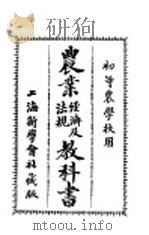 初等農學校用
農業經濟及法規教科書
上海新學會社藏版